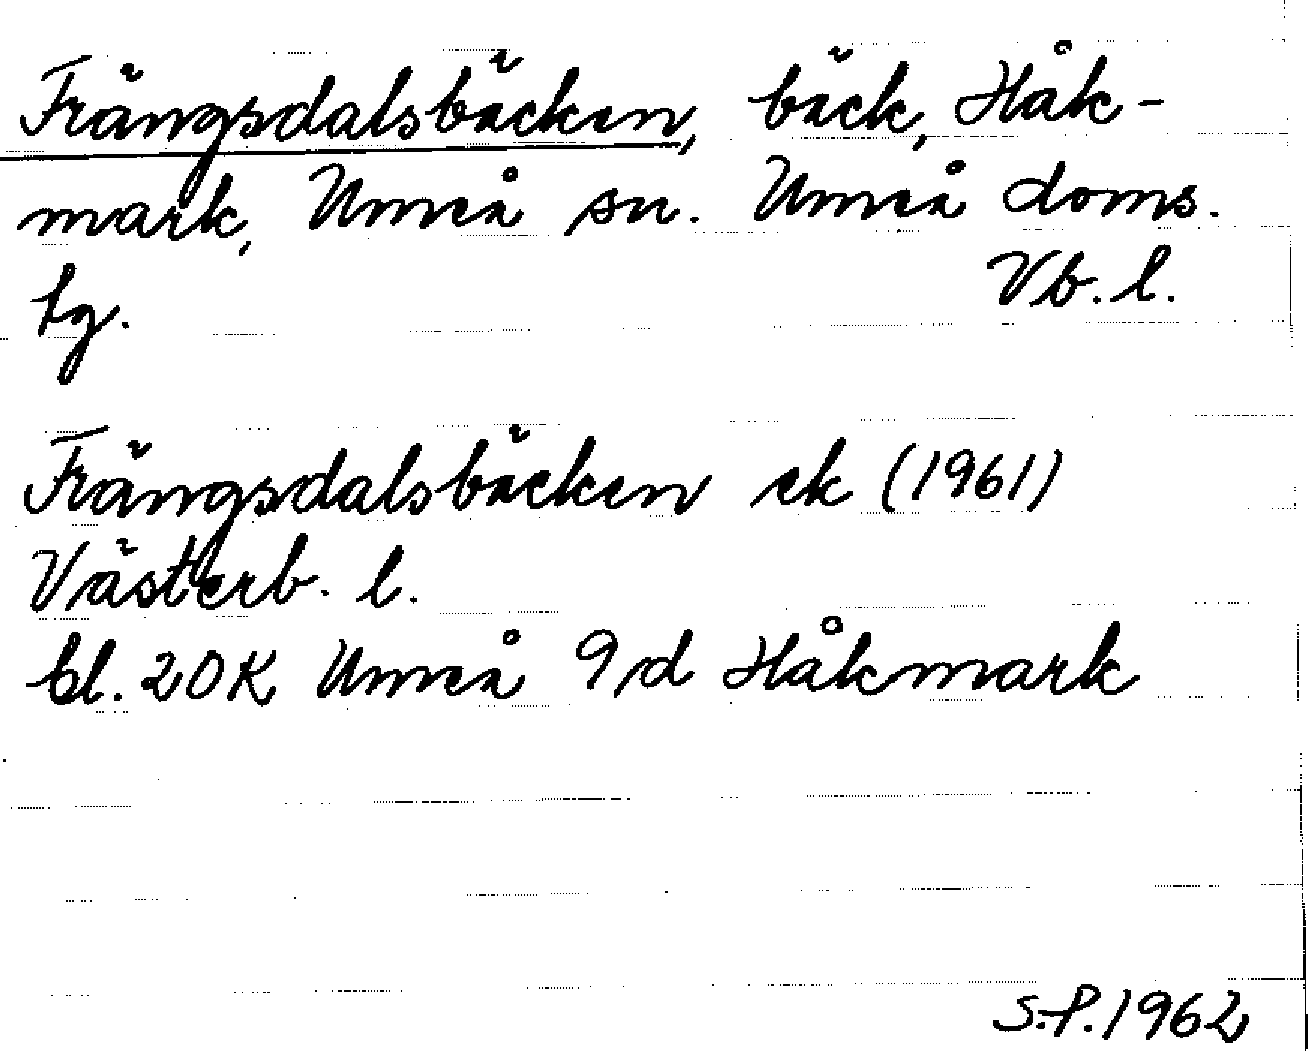 Frängsdalsbäcken, bäck, Håk-
mark, Umeå sn. Umeå doms.
tg. Vb. l.
Frängsdalsbäcken ek (1961)
Västerb. l.
bl. 20K Umeå 9/d Håkmark
S.P. 1962